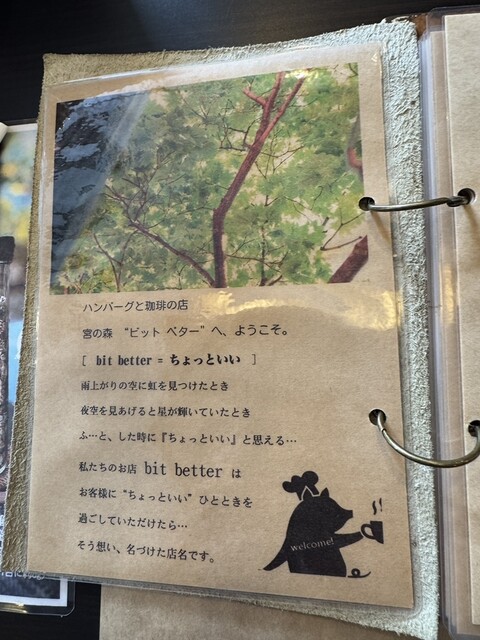 ハンバーグと珈琲の店
宮の森 “ビット ベター” へ、ようこそ。
[ bit better = ちょっといい ]
雨上がりの空に虹を見つけたとき
夜空を見あげると星が輝いていたとき
ふ…と、した時に『ちょっといい』と思える…
私たちのお店 bit better は
お客様に “ちょっといい” ひとときを
過ごしていただけたら…
そう想い、名づけた店名です。
welcome!